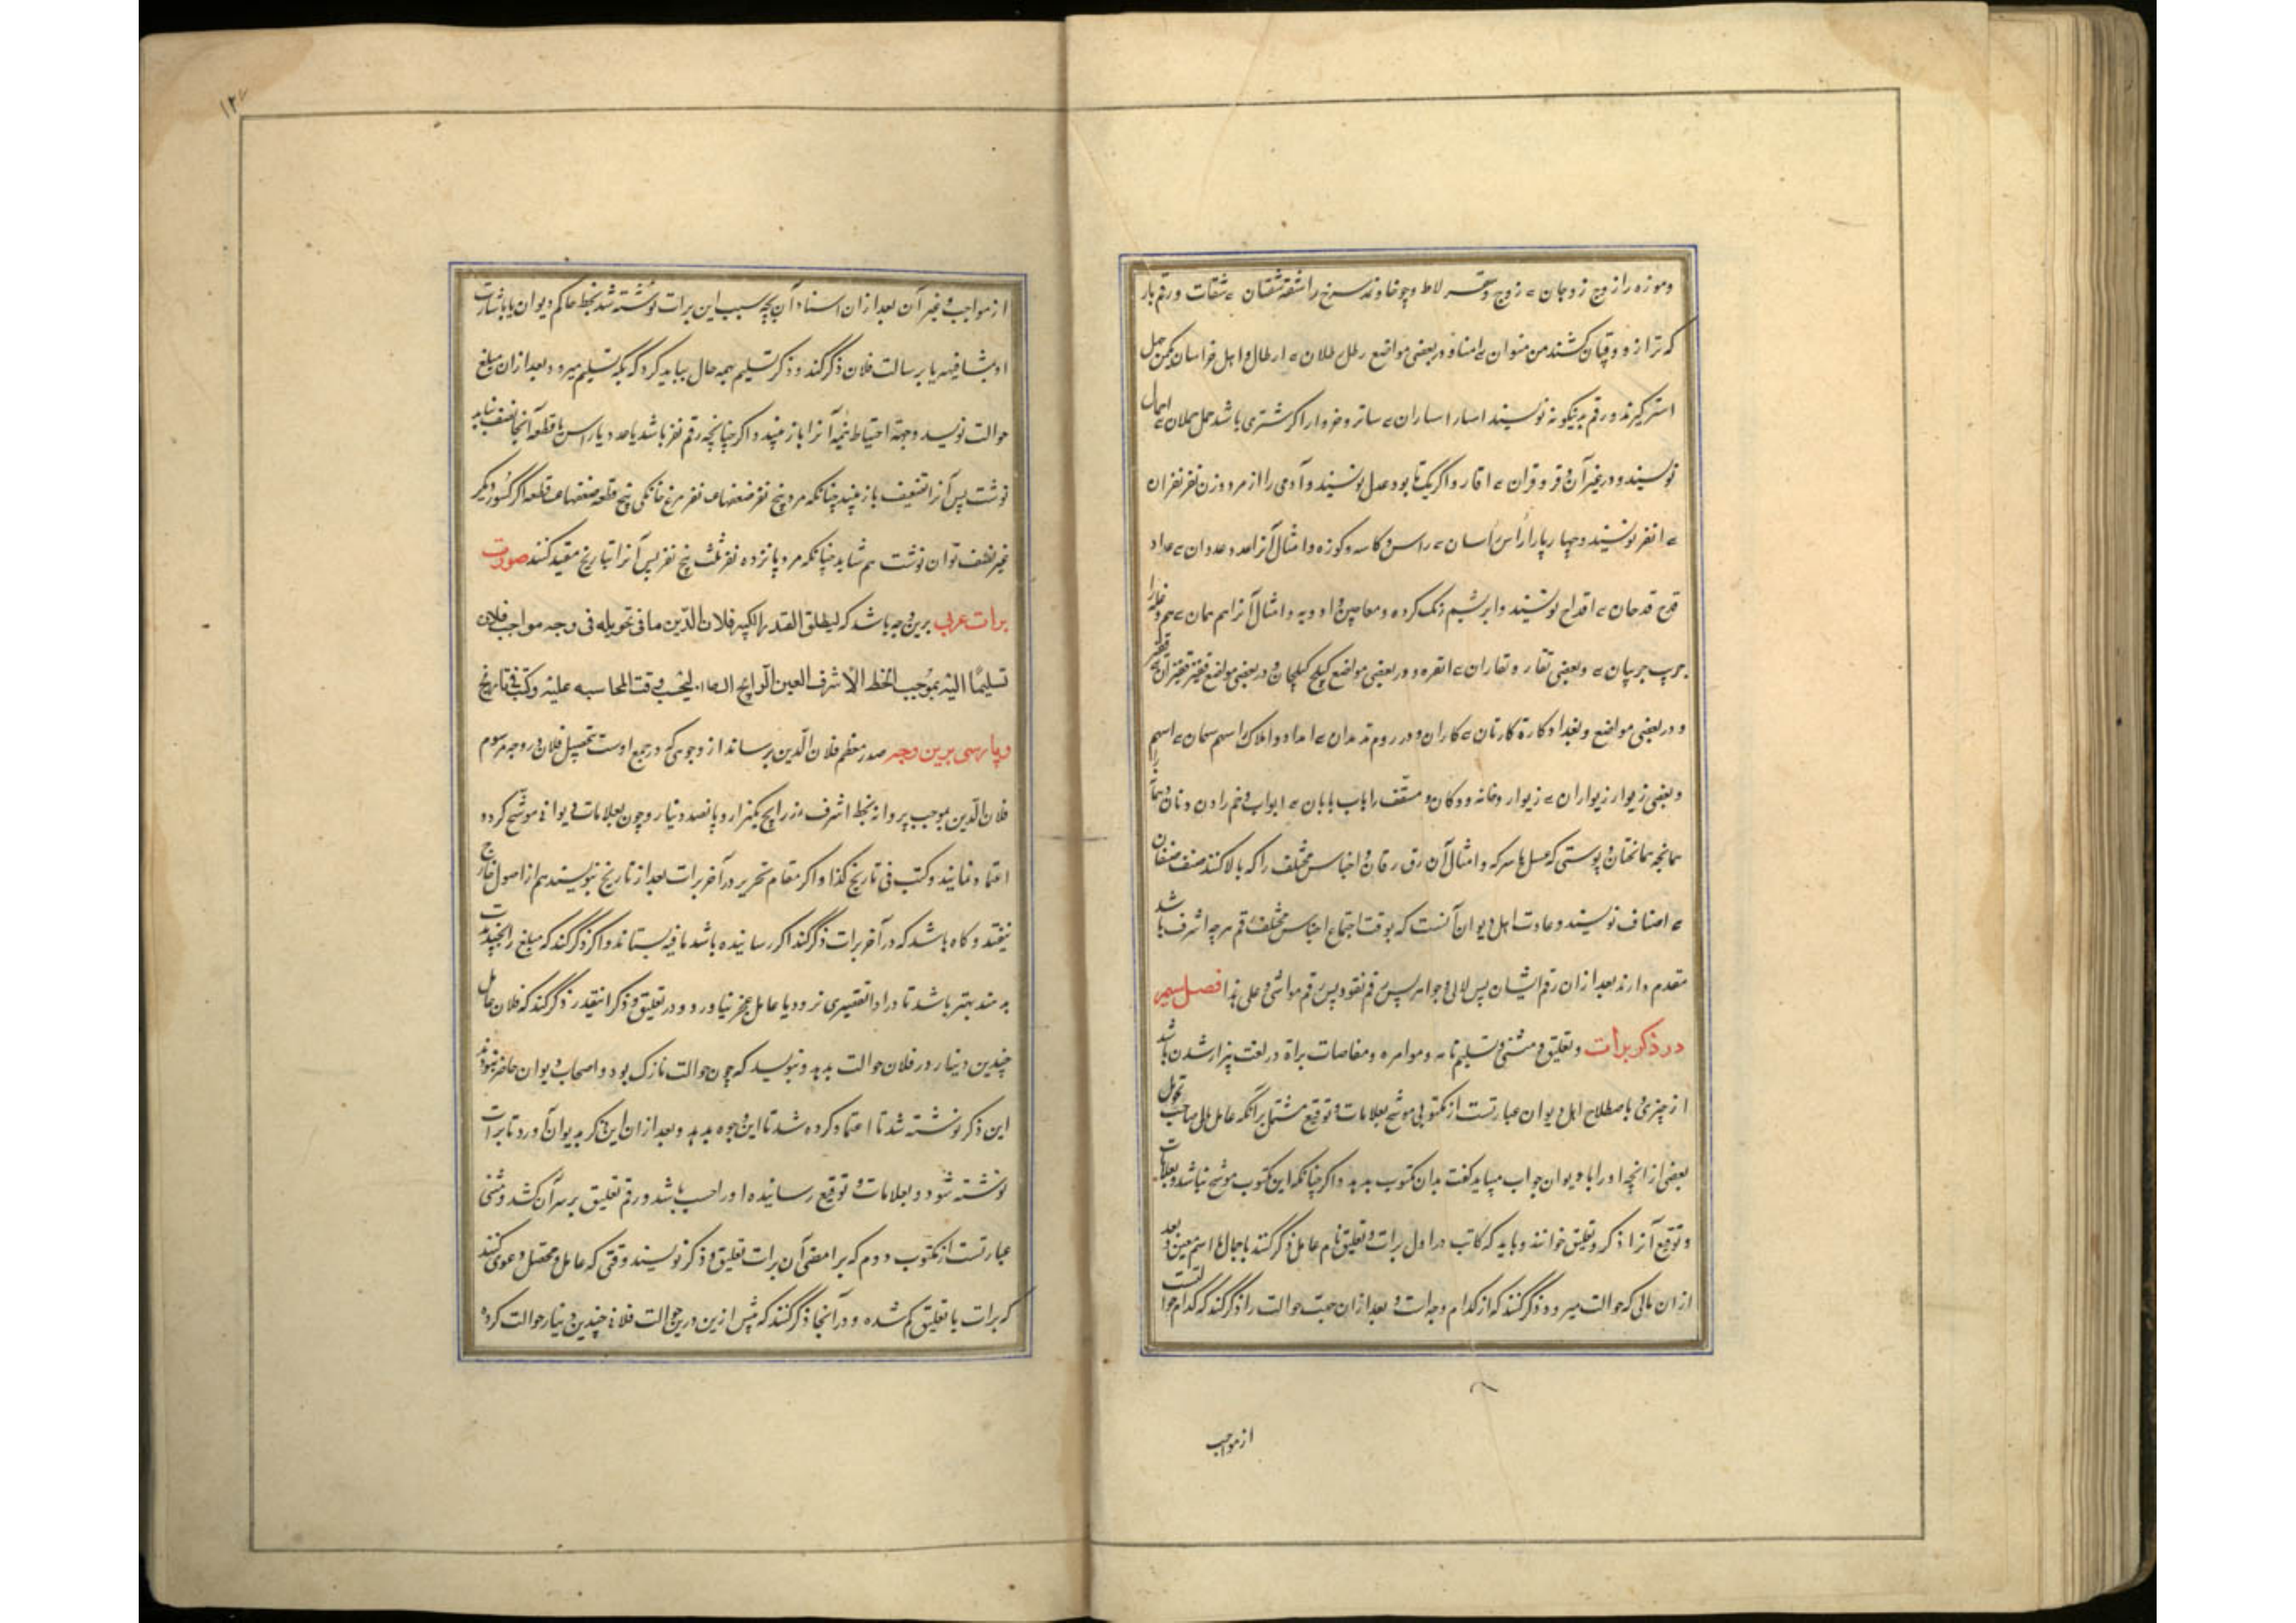 وموزه را زوج زوجان ء زوج و سقرلاط و چوخا و نمد سرخ را شقه شقتان ء شقات و رقم بار
که ترازو و قپان کشند من منوان ء امنا و در بعضی مواضع رطل رطلان ء ارطال و اهل خراسان یکمن چهل
استر گیرند و رقم برینگونه نویسند اسار اساران ء ساتر و خروار اگر شتری باشد حمل حملان ء احمال
نویسند و در غیر آن وقر وقران ء اوقار و اگر یکتا بود عدل نویسند و آدمی را از مرد و زن نفر نفران
ء انفر نویسند و چهارپا را راس راسان ء راس و کاسه و کوزه و امثال آنرا عدد عددان ء عداد
قدح قدحان ء اقداح نویسند و ابریشم رنک کرده و معاجین و ادویه و امثال آنرا هم همان ء هم و غله را
جریب جریبان ء و بعضی تغار و تغاران ء اتغره و در بعضی مواضع کیلج کیلجان و در بعضی مواضع قفیز قفیزان ء قفیز
و در بعضی مواضع و بغداد کارة کارتان ء کاران و در روم مد مدان ء امداد و املاک را سهم سهمان ء اسهم
و بعضی زیوار زیواران ء زیوار و خانه و دکان و مسقف را باب بابان ء ابواب و خم را دن دنان
و پوستی که عسل یا سرکه و امثال آن زق زقان و اجناس مختلف را که بالا کنند صنف صنفان
ء اصناف نویسند و عادت اهل دیوان آنست که بوقت اجتماع اجناس مختلفه رقم هرچه اشرف باشد
مقدم دارند بعد از ان رقم ایشان پس لالی و جواهر پس رقم نقود پس رقم مواشی و علی هذا فصل سیم
در ذکر برات و تعلیق و مثنی و تسلیم نامه و موامره و مفاصات براة در لغت بیزار شدن باشد
از چیزی و باصطلاح اهل دیوان عبارتست از مکتوبی موشح بعلامات و توقیع مشتمل برآنکه عامل یا صاحب تحویل
بعضی از انچه او را با دیوان جواب میباید گفت بدان مکتوب بدهد و اگر چنانکه این مکتوب موشح نباشد بعلامات
و توقیع آنرا ذکر و تعلیق خوانند و باید که کاتب در اول برات و تعلیق نام عامل ذکر کند باجمال یا اسم معین و بعد
از ان مالی که حوالت میرود ذکر کنند که از کدام وجه است و بعد از ان جهت حوالت را ذکر کند که کدام حوالتست
از مواجب
از مواجب و غیر آن بعد از ان اسناد آن بچه سبب این برات نوشته شد بخط حاکم دیوان یا باشارت
او بمشافهه یا برسالت فلان ذکر کند و ذکر تسلیم بهمه حال بباید کرد که بکه تسلیم میرود و بعد از ان مبلغ
حوالت نویسد و جهة احتیاط نیمه آنرا باز نمیند و اگر چنانچه رقم نفر باشد یا عدد یا راس یا قطعه آنجا نصف نباید
نوشت پس آنرا تضعیف باز نمیند چنانکه مرد پنج نفر ضعفها نفر مرغ خانگی پنج قطعه ضعفها قطعه اگر کسور دیگر
غیر نصف توان نوشت هم شاید چنانکه مرد پانزده نفر ثلث پنج نفر پس آنرا بتاریخ مقید کنند صورت
برات عربی برین وجه باشد که لیطلق الصدر الکبیر فلان الدّین مما فی تحویله فی وجه مواجب فلان
تسلیمًا الیه بموجب الخط الأشرف العین الرایج لیحسب وقت المحاسبه علیه وکتب فی تاریخ
و پارسی برین وجه صدر معظم فلان الدّین برساند از وجوهی که در جمع اوست بتحصیل فلان در وجه مرسوم
فلان الدّین بموجب پروانه بخط اشرف زر رایج یکهزار و پانصد دینار و چون بعلامات دیوانی موشح گردد
اعتماد نمایند و کتب فی تاریخ کذا و اگر مقام تحریر در آخر برات بعد از تاریخ بنویسند هم از اصول خارج
نیفتد و گاه باشد که در آخر برات ذکر کنند اگر رسانیده باشد مافیه بستاند و اگر ذکر کند که مبلغ را بچند نوبت
بدهند بهتر باشد تا در ادا تقصیری نرود یا عامل عجز نیاورد و در تعلیق و ذکر اینقدر ذکر کند که فلان عامل
چندین دینار در فلان حوالت بدهد و بنویسد که چون حوالت نازک بود و اصحاب دیوان حاضر نبودند
این ذکر نوشته شد تا اعتماد کرده شد تا این وجوه بدهد و بعد از ان این ذکر بدیوان آورد تا برات
نوشته شود و بعلامات و توقیع رسانیده او را حسب باشد و رقم تعلیق بر سر آن کشد و مثنی
عبارتست از مکتوب دوم که بر امضی آن برات و تعلیق و ذکر نویسند وقتی که عامل و محصل دعوی کنند
که برات یا تعلیق گم شده و در آنجا ذکر کنند که پیش ازین درین حوالت فلانی چندین دینار حوالت کرده